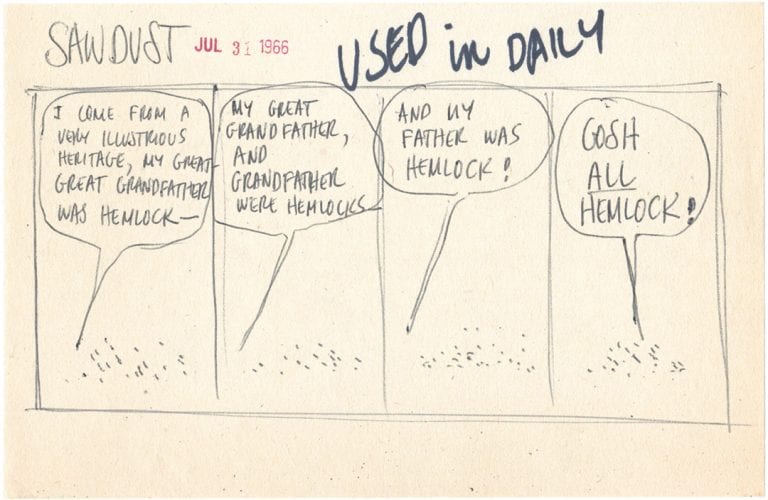 SAWDUST JUL 31 1966 USED in DAILY
I COME FROM A
VERY ILLUSTRIOUS
HERITAGE, MY GREAT-
GREAT GRANDFATHER
WAS HEMLOCK—
MY GREAT
GRANDFATHER,
AND
GRANDFATHER
WERE HEMLOCKS—
AND MY
FATHER WAS
HEMLOCK!
GOSH
ALL
HEMLOCK!